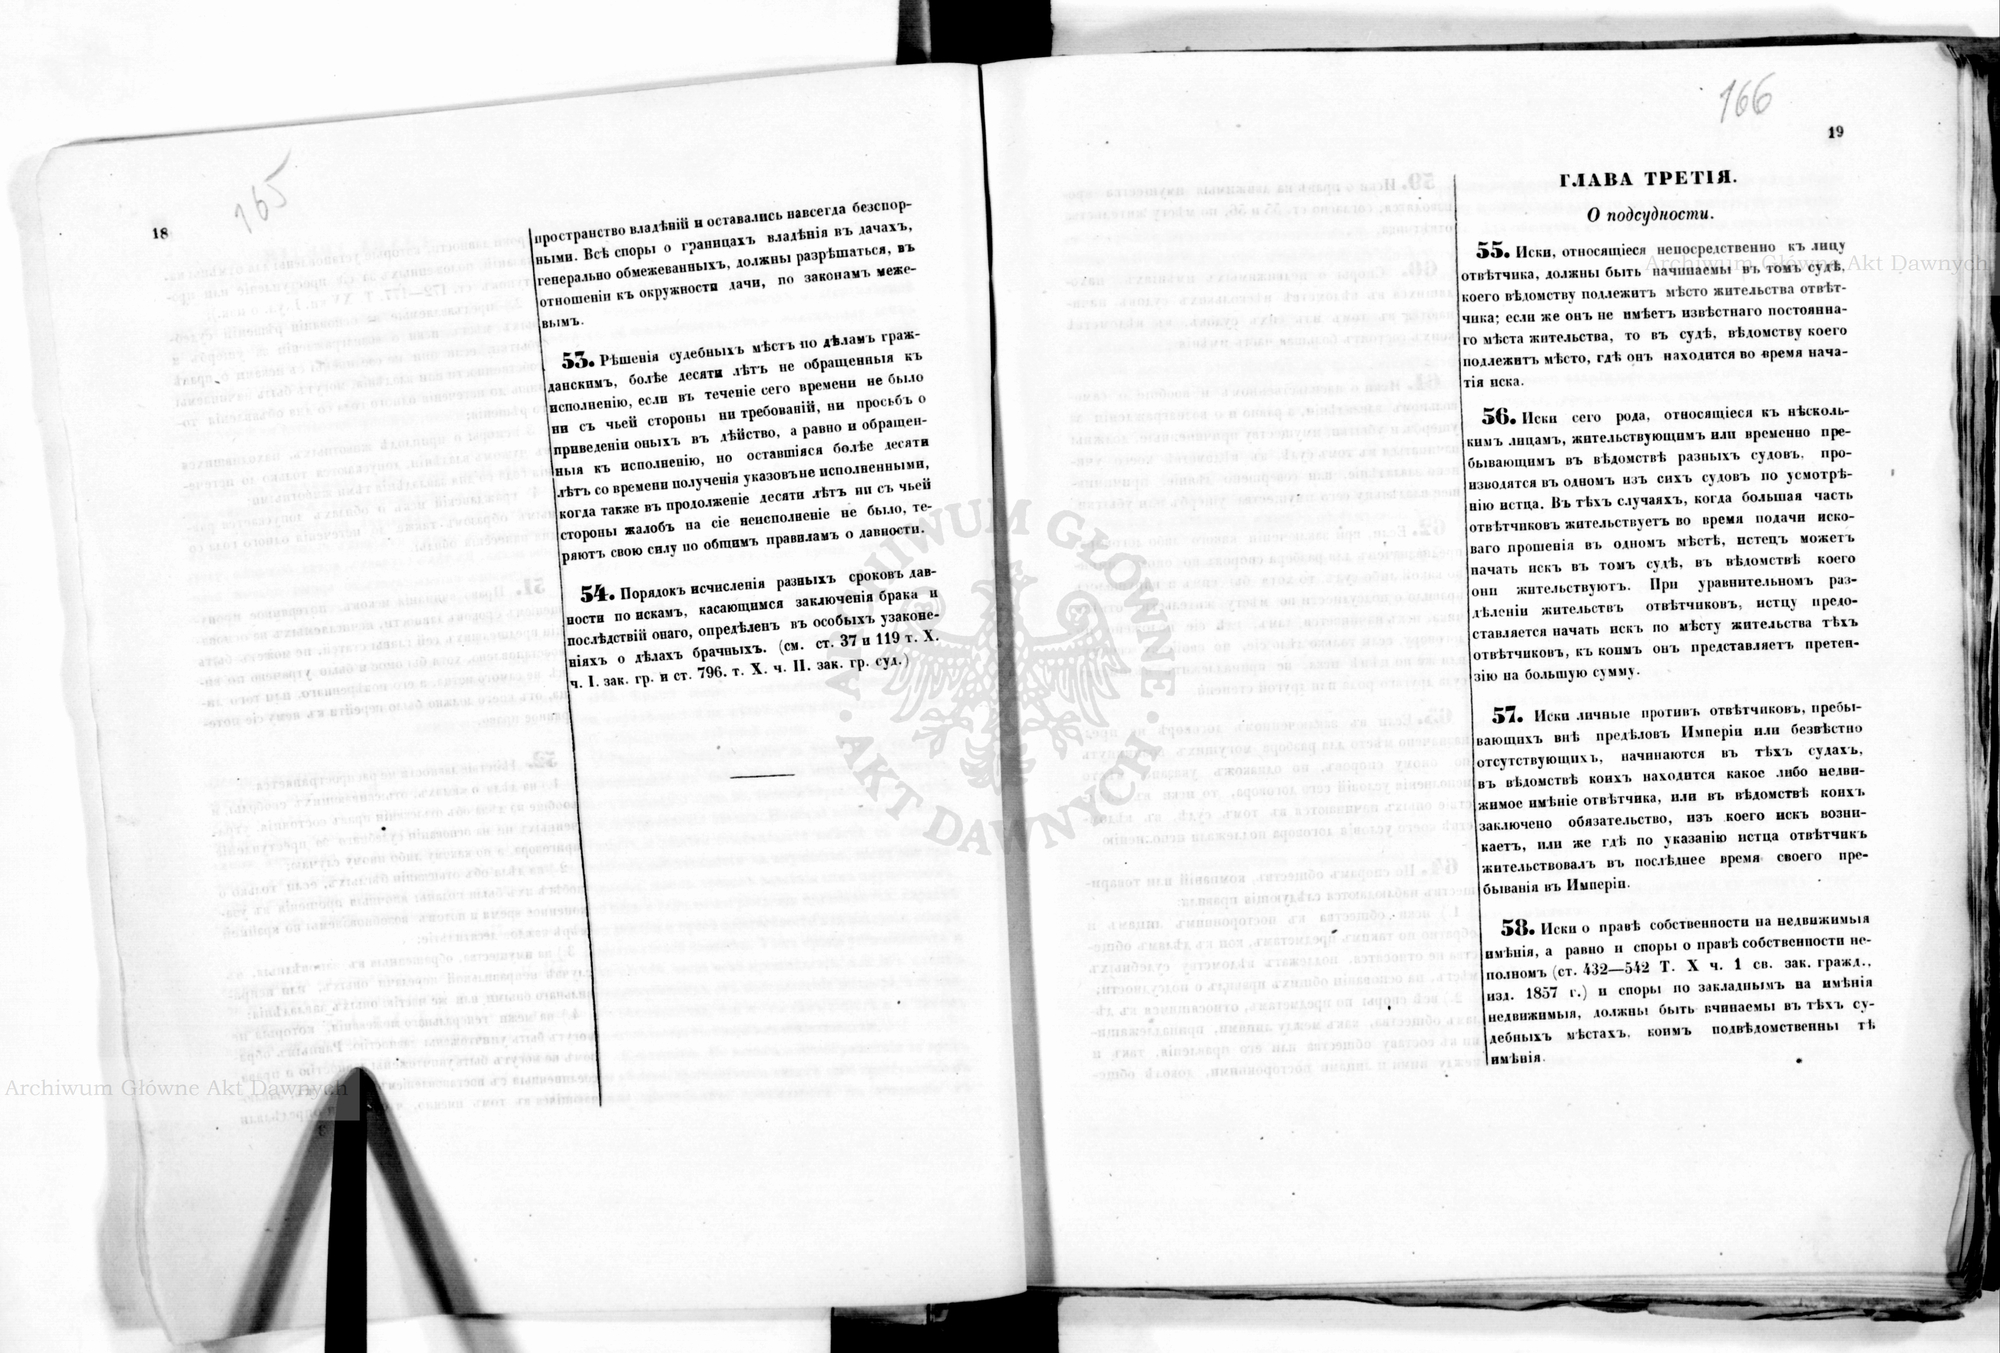 165
18
пространство владѣній и оставались навсегда безспор-
ными. Всѣ споры о границахъ владѣнія въ дачахъ,
генерально обмежеванныхъ, должны разрѣшаться, въ
отношеніи къ окружности дачи, по законамъ меже-
вымъ.
53. Рѣшенія судебныхъ мѣстъ по дѣламъ граж-
данскимъ, болѣе десяти лѣтъ не обращенныя къ
исполненію, если въ теченіе сего времени не было
ни съ чьей стороны ни требованій, ни просьбъ о
приведеніи оныхъ въ дѣйство, а равно и обращен-
ныя къ исполненію, но оставшіяся болѣе десяти
лѣтъ со времени полученія указовъ не исполненными,
когда также въ продолженіе десяти лѣтъ ни съ чьей
стороны жалобъ на сіе неисполненіе не было, те-
ряютъ свою силу по общимъ правиламъ о давности.
54. Порядокъ исчисленія разныхъ сроковъ дав-
ности по искамъ, касающимся заключенія брака и
послѣдствій онаго, опредѣленъ въ особыхъ узаконе-
ніяхъ о дѣлахъ брачныхъ. (см. ст. 37 и 119 т. X.
ч. I. зак. гр. и ст. 796. т. X. ч. II. зак. гр. суд.)
166
19
ГЛАВА ТРЕТІЯ.
О подсудности.
55. Иски, относящіеся непосредственно къ лицу
отвѣтчика, должны быть начинаемы въ томъ судѣ,
коего вѣдомству подлежитъ мѣсто жительства отвѣт-
чика; если же онъ не имѣетъ извѣстнаго постоянна-
го мѣста жительства, то въ судѣ, вѣдомству коего
подлежитъ мѣсто, гдѣ онъ находится во время нача-
тія иска.
56. Иски сего рода, относящіеся къ нѣсколь-
кимъ лицамъ, жительствующимъ или временно пре-
бывающимъ въ вѣдомствѣ разныхъ судовъ, про-
изводятся въ одномъ изъ сихъ судовъ по усмотрѣ-
нію истца. Въ тѣхъ случаяхъ, когда большая часть
отвѣтчиковъ жительствуетъ во время подачи иско-
ваго прошенія въ одномъ мѣстѣ, истецъ можетъ
начать искъ въ томъ судѣ, въ вѣдомствѣ коего
они жительствуютъ. При уравнительномъ раз-
дѣленіи жительствъ отвѣтчиковъ, истцу предо-
ставляется начать искъ по мѣсту жительства тѣхъ
отвѣтчиковъ, къ коимъ онъ представляетъ претен-
зію на большую сумму.
57. Иски личные противъ отвѣтчиковъ, пребы-
вающихъ внѣ предѣловъ Имперіи или безвѣстно
отсутствующихъ, начинаются въ тѣхъ судахъ,
въ вѣдомствѣ коихъ находится какое либо недви-
жимое имѣніе отвѣтчика, или въ вѣдомствѣ коихъ
заключено обязательство, изъ коего искъ возни-
каетъ, или же гдѣ по указанію истца отвѣтчикъ
жительствовалъ въ послѣднее время своего пре-
быванія въ Имперіи.
58. Иски о правѣ собственности на недвижимыя
имѣнія, а равно и споры о правѣ собственности не-
полномъ (ст. 432—542 Т. X ч. 1 св. зак. гражд.,
изд. 1857 г.) и споры по закладнымъ на имѣнія
недвижимыя, должны быть вчинаемы въ тѣхъ су-
дебныхъ мѣстахъ, коимъ подвѣдомственны тѣ
имѣнія.
ARCHIWUM GŁÓWNE
AKT DAWNYCH
Archiwum Główne Akt Dawnych
Archiwum Główne Akt Dawnych